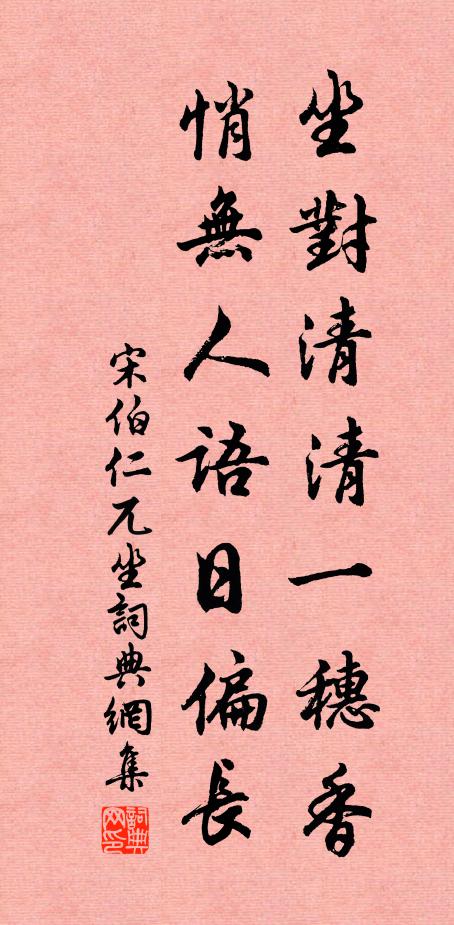 坐對清清一穗香
悄無人語日偏長
宋伯仁兀坐詞典網集
詞典网印